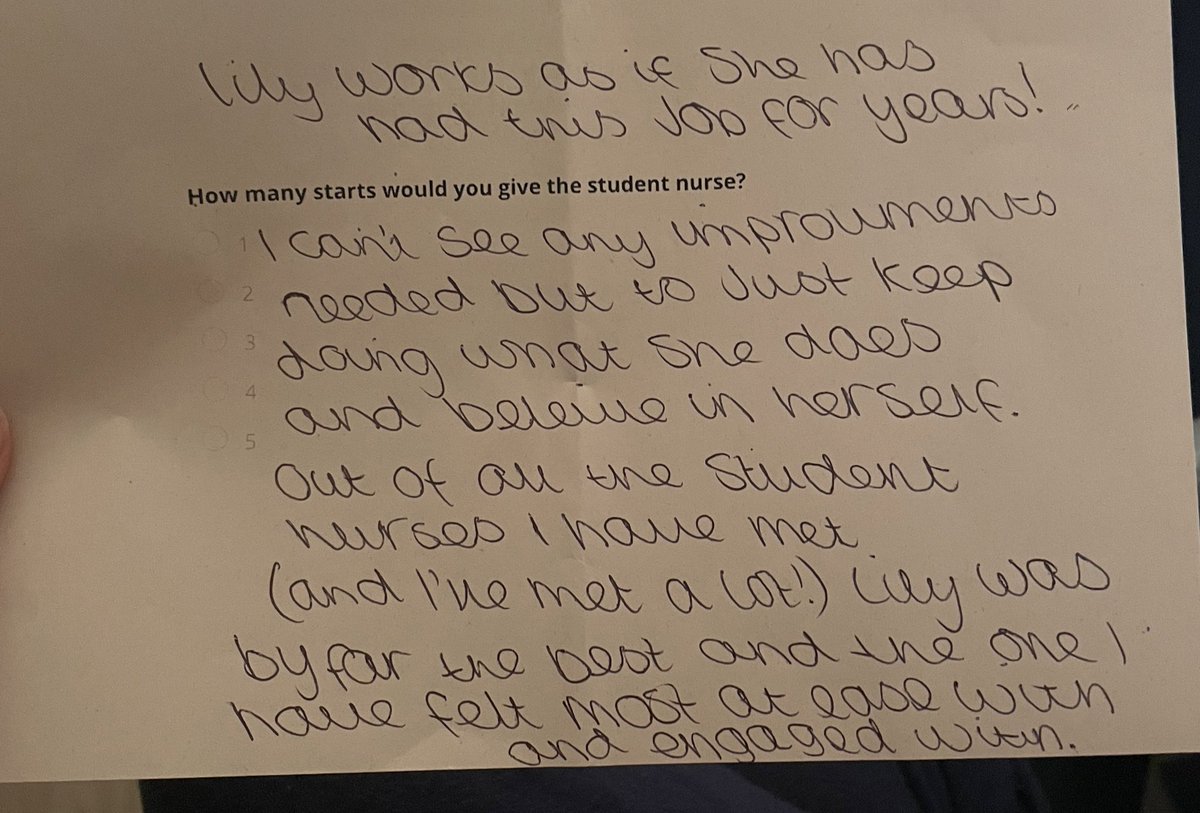 Lily works as if She has
had this Job for years!
How many starts would you give the student nurse?
1 I can't see any improvments
2 needed but to Just keep
3 doing what she does
4 and beleive in herself.
5 Out of all the Student
nurses I have met
(and I've met a lot!) Lily was
by far the best and the one I
have felt most at ease with
and engaged with.